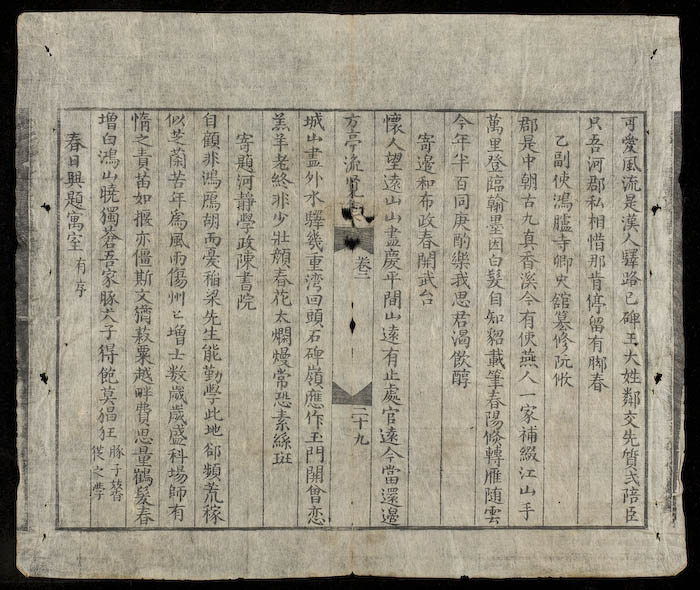 可愛風流是漢人驛路已碑王大姓鄰交先質弍陪臣
只吾河郡私相惜那肯停留有脚春
乙副使鴻臚寺卿史舘纂修阮攸
郡是中朝古九真香溪今有使燕人一家補綴江山手
萬里登臨翰墨因白髮自知貂載筆春陽倐轉雁随雲
今年半百同庚酌樂我思君渴飲醇
寄邉和布政春開武台
懷人望遠山山盡慶平間山遠有止處官遠今當還邉
城山盡外水驛幾重湾回頭石碑嶺應作玉門關曾恋
方亭流
卷三
二十九
羔羊老終非少壯顔春花太爛熳常恐素絲斑
寄題河静學政陳書院
自顧非鴻鴈胡而憂稲梁先生能勤學此地郤頻荒稼
似芝蘭苦年爲風雨傷州已增士数歲歲盛科塲師有
惰之責苗如揠亦僵斯文濟菽粟越畔費思量鶴髮春
增白鴻山曉獨蒼吾家豚犬子得飽莫猖狂
豚子
從之學
春日興題寓室
有序